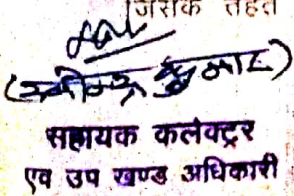 जिसके तहत
कुमार)
सहायक कलेक्टर
एव उप खण्ड अधिकारी